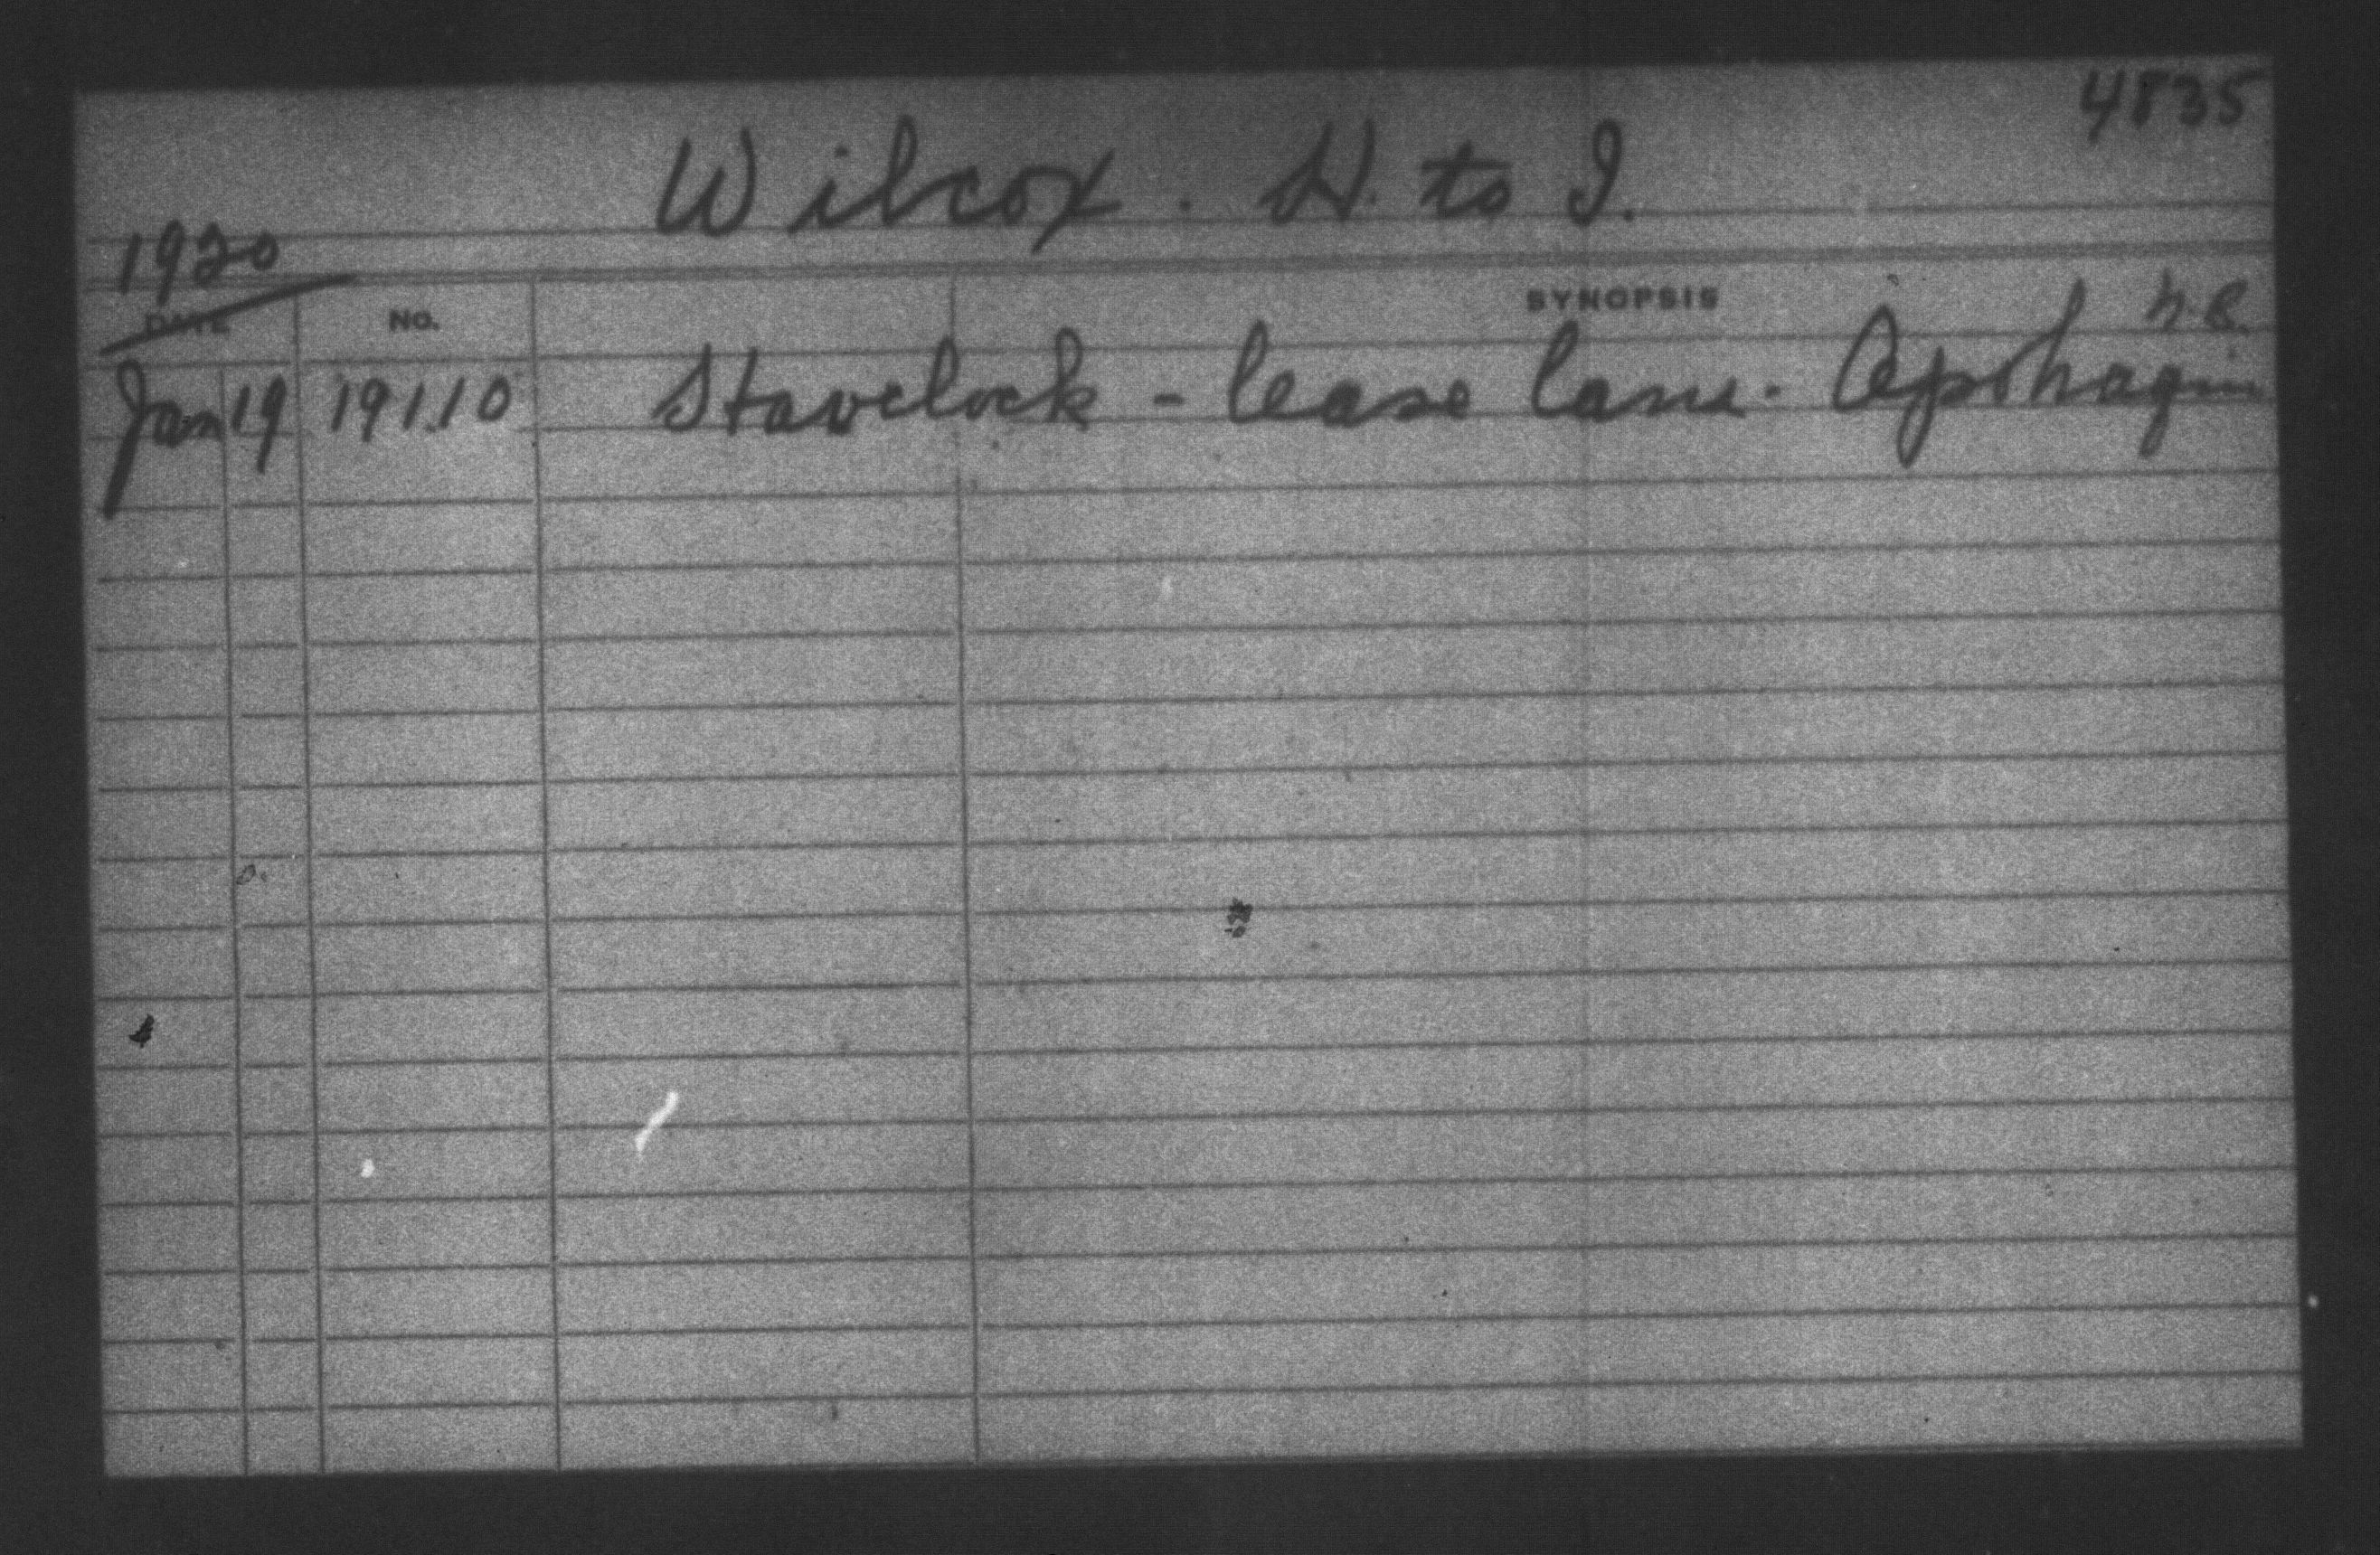 4835
Wilcox. H. to I.
1920
DATE No. SYNOPSIS
Jan 19 19110 Stavelock - lease land. Apohaqui N.B.